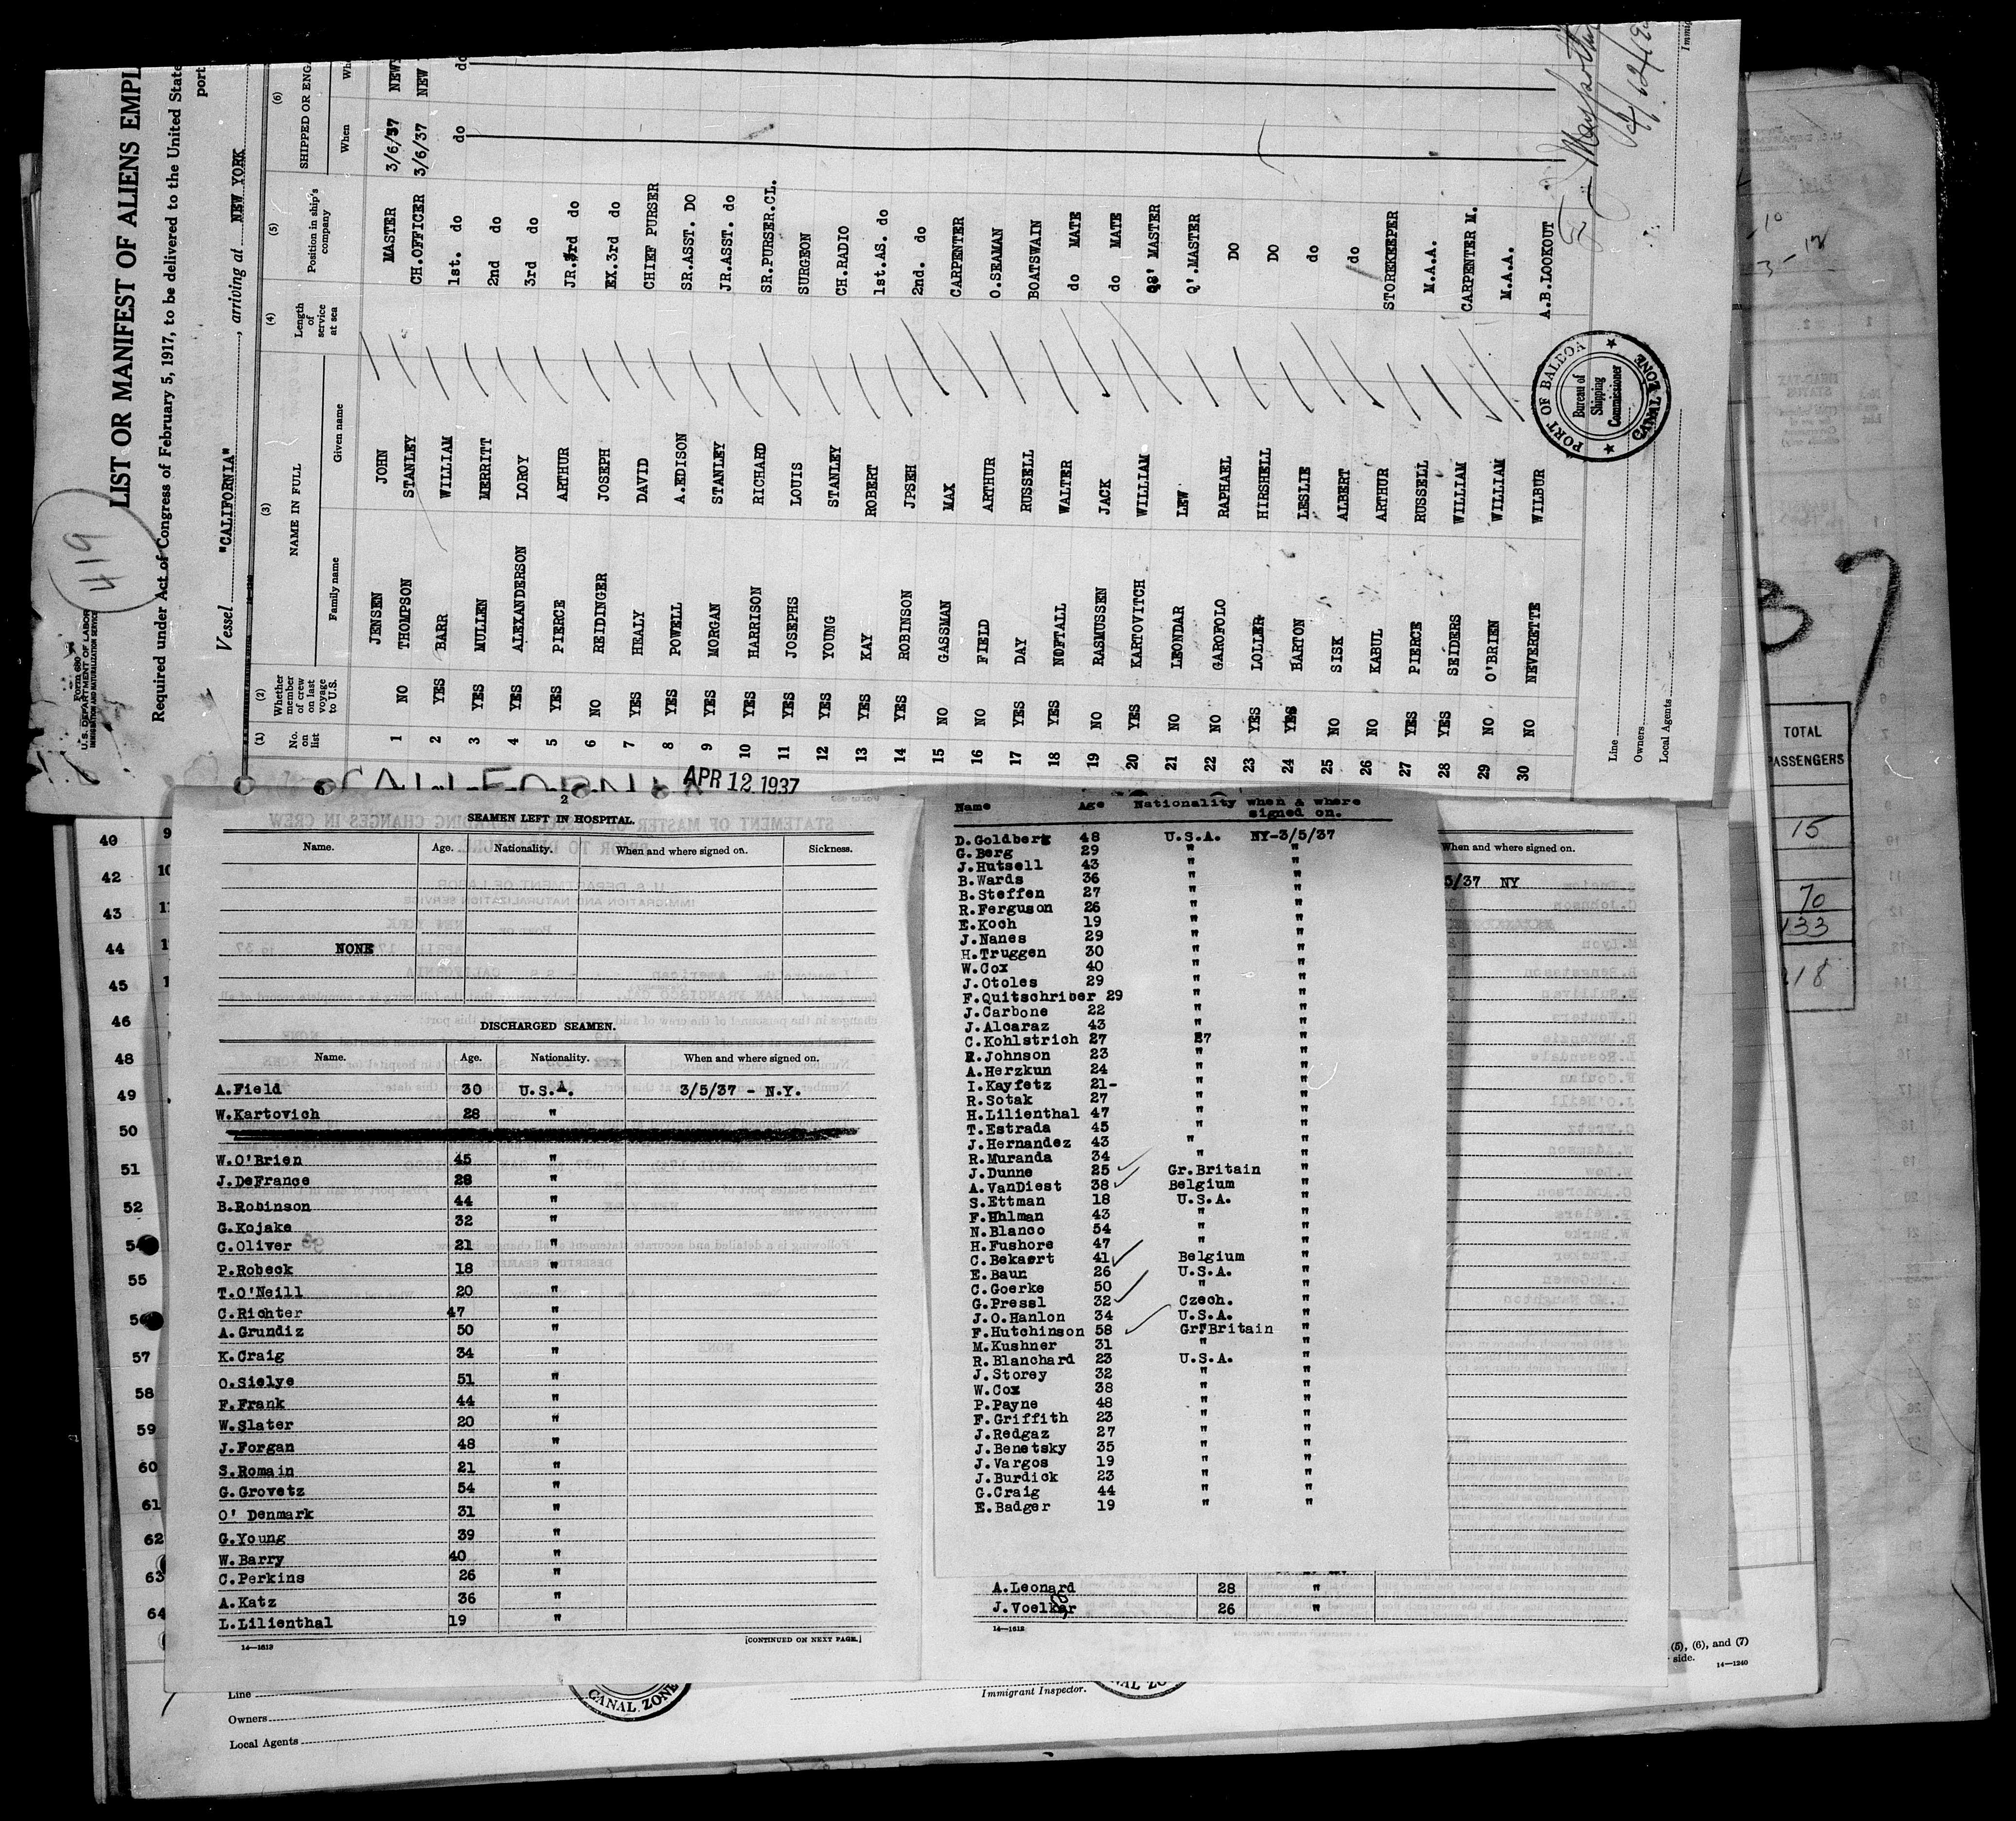 419
Form 680
U.S. DEPARTMENT OF LABOR
IMMIGRATION AND NATURALIZATION SERVICE
LIST OR MANIFEST OF ALIENS EMPL
Required under Act of Congress of February 5, 1917, to be delivered to the United State
port
Vessel "CALIFORNIA", arriving at NEW YORK
(1) (2) (3) (4) (5) (6)
No. on list Whether member of crew on last voyage to U.S. NAME IN FULL Length of service at sea Position in ship's company SHIPPED OR ENG
Family name Given name When Wh
JENSEN JOHN MASTER 3/6/37 NEW
1 NO THOMPSON STANLEY CH.OFFICER 3/6/37 NEW
2 YES BARR WILLIAM 1st. do do do
3 YES MULLEN MERRITT 2nd do
4 YES ALEXANDERSON LOROY 3rd do
5 YES PIERCE ARTHUR JR.3rd do
6 NO REIDINGER JOSEPH EX.3rd do
7 YES HEALY DAVID CHIEF PURSER
8 YES POWELL A.EDISON SR.ASST. DO
9 YES MORGAN STANLEY JR.ASST. do
10 YES HARRISON RICHARD SR.PURSER.CL.
11 YES JOSEPHS LOUIS SURGEON
12 YES YOUNG STANLEY CH.RADIO
13 YES KAY ROBERT 1st.AS. do
14 YES ROBINSON JPSEH 2nd. do
15 NO GASSMAN MAX CARPENTER
16 NO FIELD ARTHUR O.SEAMAN
17 YES DAY RUSSELL BOATSWAIN
18 YES NOFTALL WALTER do MATE
19 NO RASMUSSEN JACK do MATE
20 YES KARTOVITCH WILLIAM QS' MASTER
21 NO LEONDAR LEW Q'.MASTER
22 NO GAROFOLO RAPHAEL DO
23 YES LOLLER HIRSHELL DO
24 YES HARTON LESLIE do
25 NO SISK ALBERT do
26 NO KABUL ARTHUR STOREKEEPER
27 YES PIERCE RUSSELL M.A.A.
28 YES SEIDERS WILLIAM CARPENTER M.
29 NO O'BRIEN WILLIAM M.A.A.
30 NO NEVERETTE WILBUR A.B.LOOKOUT
Line
Owners
Local Agents
PORT OF BALBOA
Bureau of
Shipping
Commissioner
CANAL ZONE
CALIFORNIA
APR 12 1937
2
SEAMEN LEFT IN HOSPITAL.
Name. Age. Nationality. When and where signed on. Sickness.
NONE
DISCHARGED SEAMEN.
Name. Age. Nationality. When and where signed on.
A.Field 30 U.S.A. 3/5/37 - N.Y.
W.Kartovich 28 "
W.O'Brien 45 "
J.DeFrance 28 "
B.Robinson 44 "
G.Kojake 32 "
C.Oliver 21 "
P.Robeck 18 "
T.O'Neill 20 "
C.Richter 47 "
A.Grundiz 50 "
K.Craig 34 "
O.Sielye 51 "
F.Frank 44 "
W.Slater 20 "
J.Forgan 48 "
S.Romain 21 "
G.Grovetz 54 "
O' Denmark 31 "
G.Young 39 "
W.Barry 40 "
C.Perkins 26 "
A.Katz 36 "
L.Lilienthal 19 "
14—1612 [CONTINUED ON NEXT PAGE.]
Name Age Nationality when & where
signed on.
D.Goldberg 48 U.S.A. NY-3/5/37
G.Berg 29 " "
J.Hutsell 43 " "
B.Wards 36 " "
B.Steffen 27 " "
R.Ferguson 26 " "
E.Koch 19 " "
J.Nanes 29 " "
H.Truggen 30 " "
W.Cox 40 " "
J.Otoles 29 " "
F.Quitschriber 29 " "
J.Carbone 22 " "
J.Alcaraz 43 " "
C.Kohlstrich 27 27 "
R.Johnson 23 " "
A.Herzkun 24 " "
I.Kayfetz 21- " "
R.Sotak 27 " "
H.Lilienthal 47 " "
T.Estrada 45 " "
J.Hernandez 43 " "
R.Muranda 34 " "
J.Dunne 25 Gr.Britain "
A.VanDiest 38 Belgium "
S.Ettman 18 U.S.A. "
F.Uhlman 43 " "
N.Blanco 54 " "
H.Fushore 47 " "
C.Bekaert 41 Belgium "
E.Baun 26 U.S.A. "
C.Goerke 50 " "
G.Pressl 32 Czech. "
J.O.Hanlon 34 U.S.A. "
F.Hutchinson 58 Gr.Britain "
M.Kushner 31 " "
R.Blanchard 23 U.S.A. "
J.Storey 32 " "
W.Cox 38 " "
P.Payne 48 " "
F.Griffith 23 " "
J.Redgaz 27 " "
J.Benetsky 35 " "
J.Vargos 19 " "
J.Burdick 23 " "
G.Craig 44 " "
E.Badger 19 " "
A.Leonard 28 "
J.Voelker 26 "
14—1612
When and where signed on.
5/37 NY
TOTAL
PASSENGERS
15
70
133
218
37
40
42
43
44
45
46
48
49
50
51
52
54
55
56
57
58
59
60
61
62
63
64
Line
Owners
Local Agents
CANAL ZONE
Immigrant Inspector.
(5), (6), and (7)
side.
14—1240